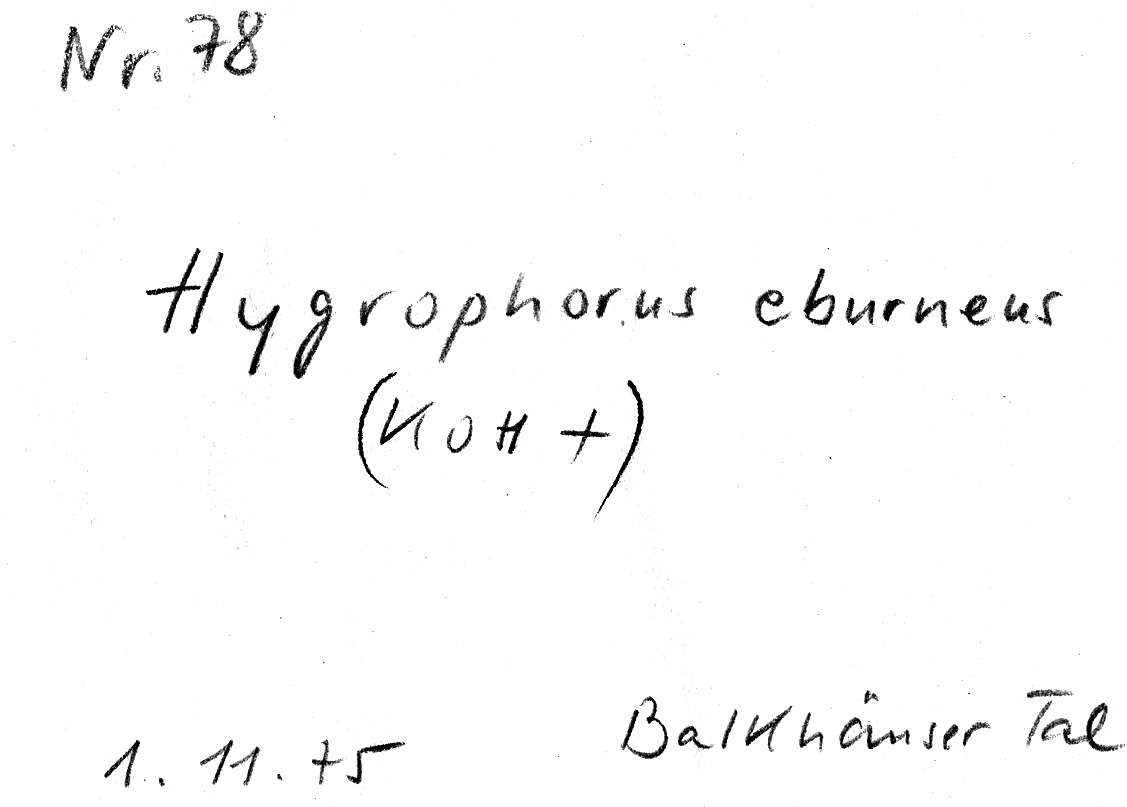 Nr. 78
Hygrophorus eburneus
(KOH +)
1. 11. 75
Balkhäuser Tal